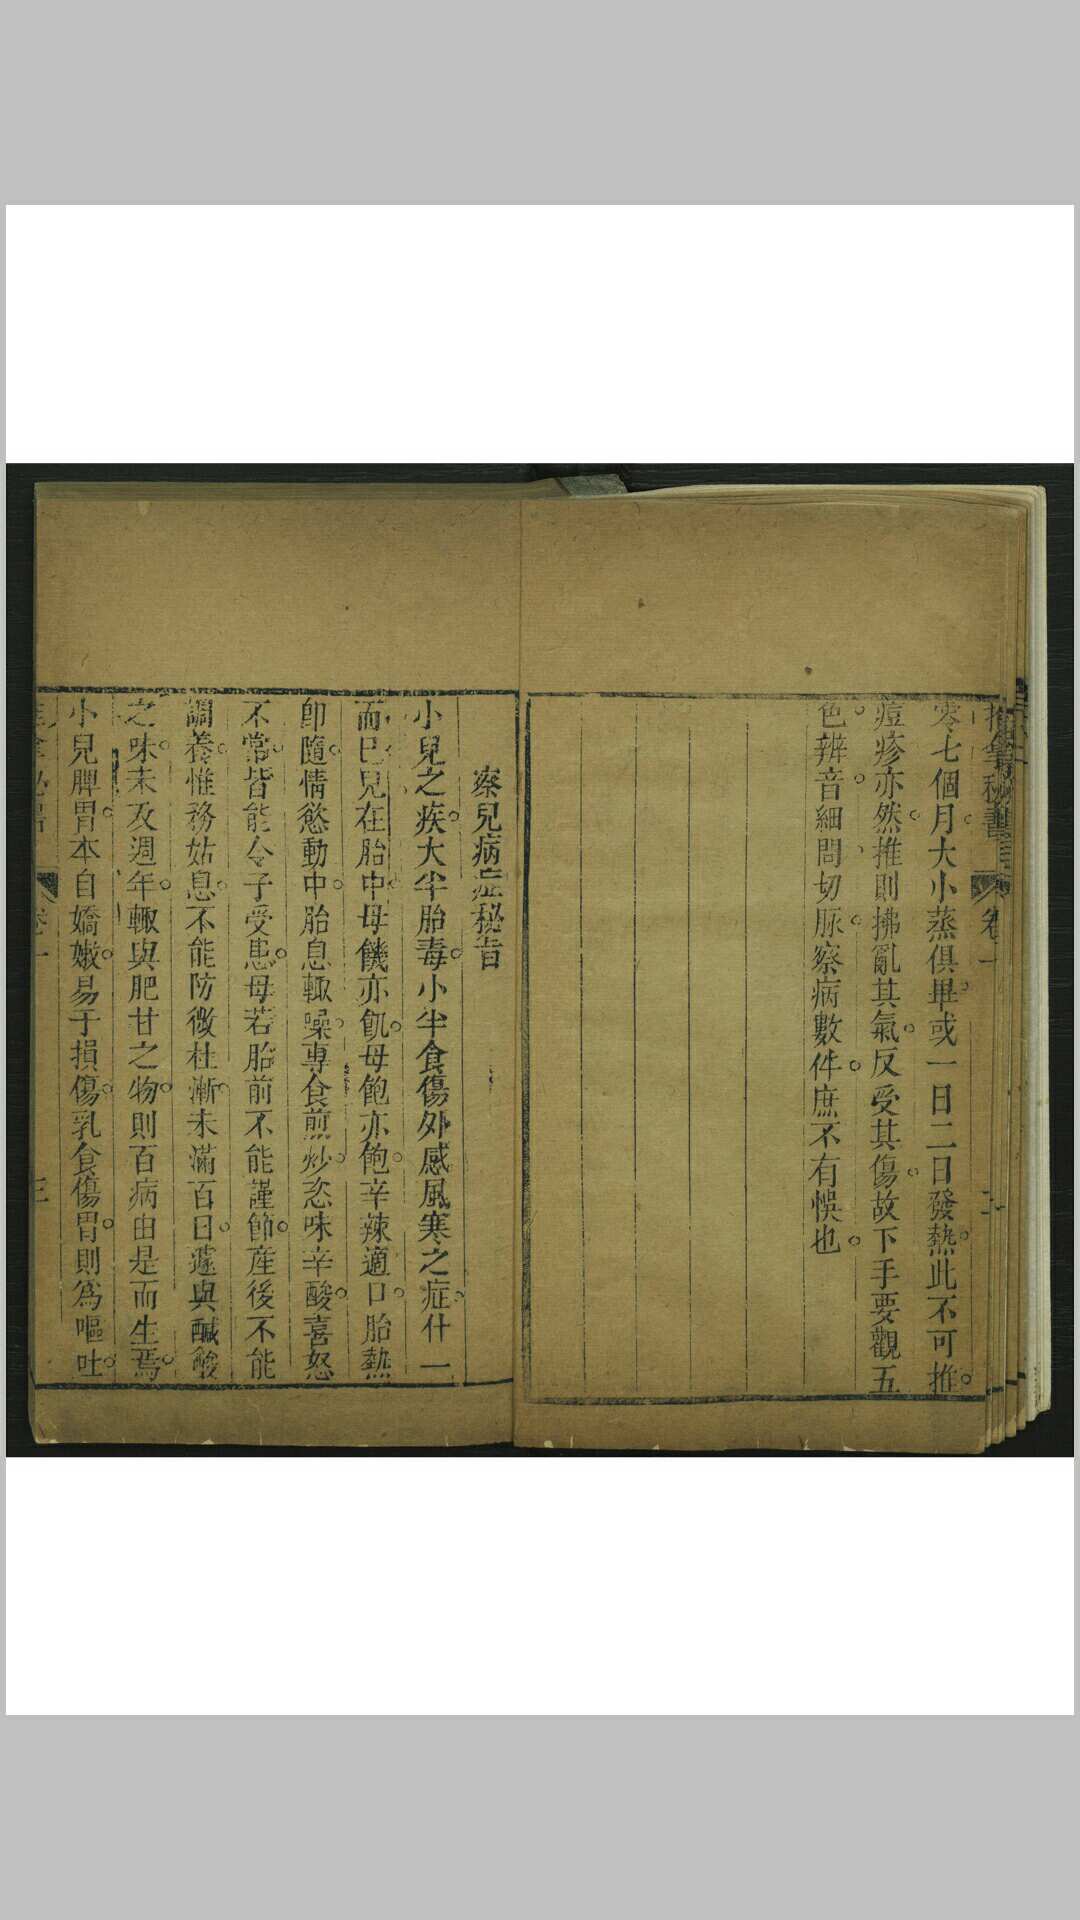 推拿秘書 卷一
零七個月大小蒸俱畢或一日二日發熱此不可推
痘疹亦然推則拂亂其氣反受其傷故下手要觀五
色辨音細問切脉察病數件庶不有悞也
察兒病症秘旨
小兒之疾大半胎毒小半食傷外感風寒之症什一
而已兒在胎中母饑亦飢母飽亦飽辛辣適口胎熱
即隨情慾動中胎息輒噪專食煎炒恣味辛酸喜怒
不常皆能令子受患母若胎前不能謹節産後不能
調養惟務姑息不能防微杜漸未滿百日遽與鹹酸
之味未及週年輒與肥甘之物則百病由是而生焉
小兒脾胃本自嬌嫩易于損傷乳食傷胃則爲嘔吐
卷一 三